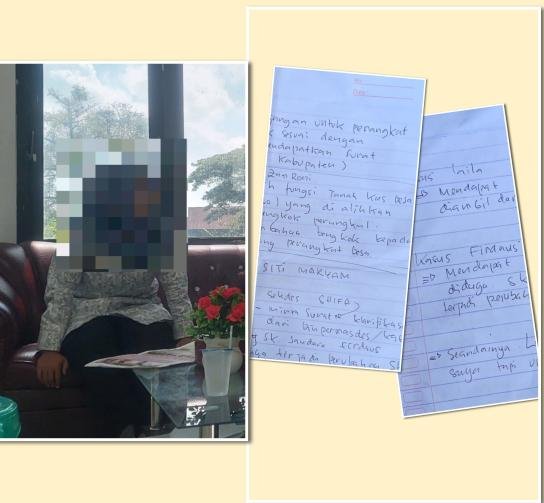 No:
Date:
ungan untuk perangkat
k sesuai dengan
endapatkan surat
Kabupaten)
Roni
h fungsi Tanah kas Desa
) yang di alihkan
engkok perangkat.
bahas bengkok kepada
ng perangkat Desa
SITI MARYAM
Sekdes (ULFA)
- minta surat klarifikasi
dari
SK saudara Firdaus
terjadi perubahan S
us laila
=> Mendapat
diambil dar
Kasus Firdaus
=> Mendapat
diduga SK
terjadi perubah
=> Seandainya
saya tapi